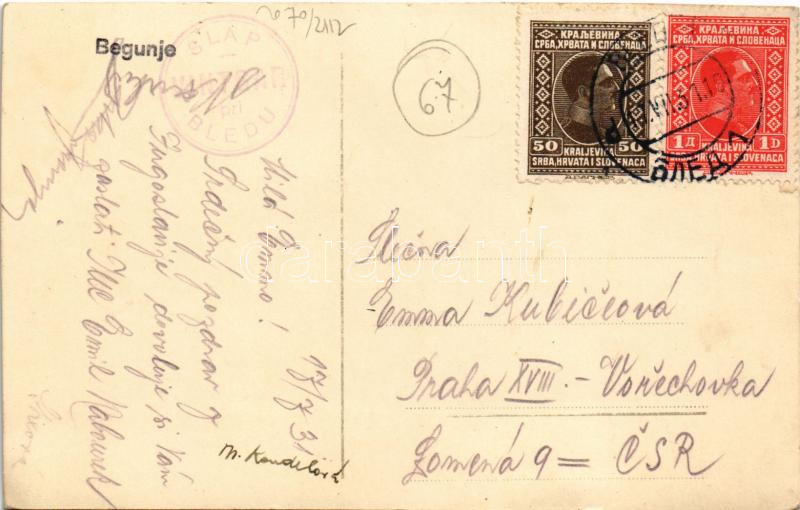 2070/2112
Begunje
SLAP
VINTGAR
pri
BLEDU
67
КРАЉЕВИНА
СРБА, ХРВАТА И СЛОВЕНАЦА
50 KRALJEVINA 50
SRBA, HRVATA I SLOVENACA
КРАЉЕВИНА
СРБА, ХРВАТА И СЛОВЕНАЦА
1Д KRALJEVINA 1D
SRBA, HRVATA I SLOVENACA
БЛЕД 1
17/7 31
Milá Emmo!
Srdečný pozdrav z
Jugoslavije dovoluje si Vám
zaslati Emil
M. Kandelová
Slečna
Emma Kubíčová
Praha XVIII. – Vořechovka
Lomená 9 = ČSR
darabanth